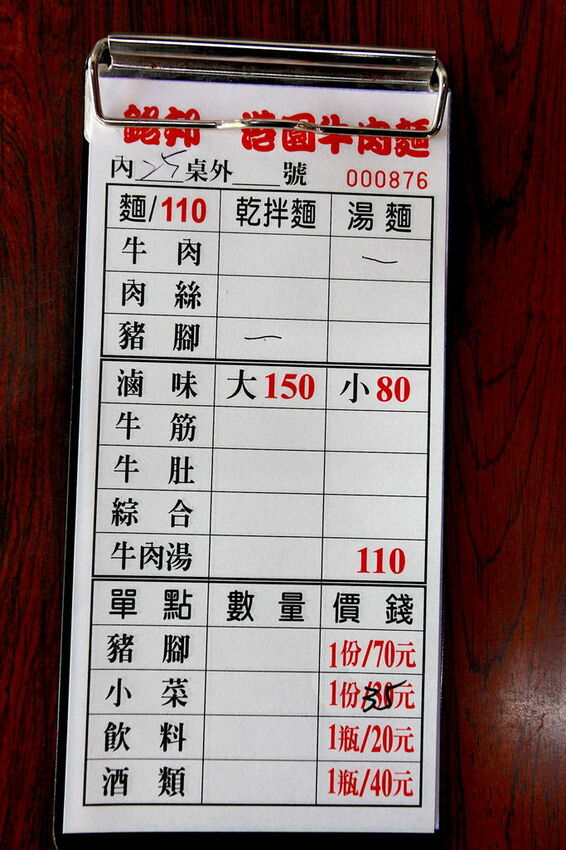 銘邦 港園牛肉麵
內25桌外___號 000876
麵/110 乾拌麵 湯麵
牛肉 一
肉絲
豬腳 一
滷味 大150 小80
牛筋
牛肚
綜合
牛肉湯 110
單點 數量 價錢
豬腳 1份/70元
小菜 1份/35元
飲料 1瓶/20元
酒類 1瓶/40元